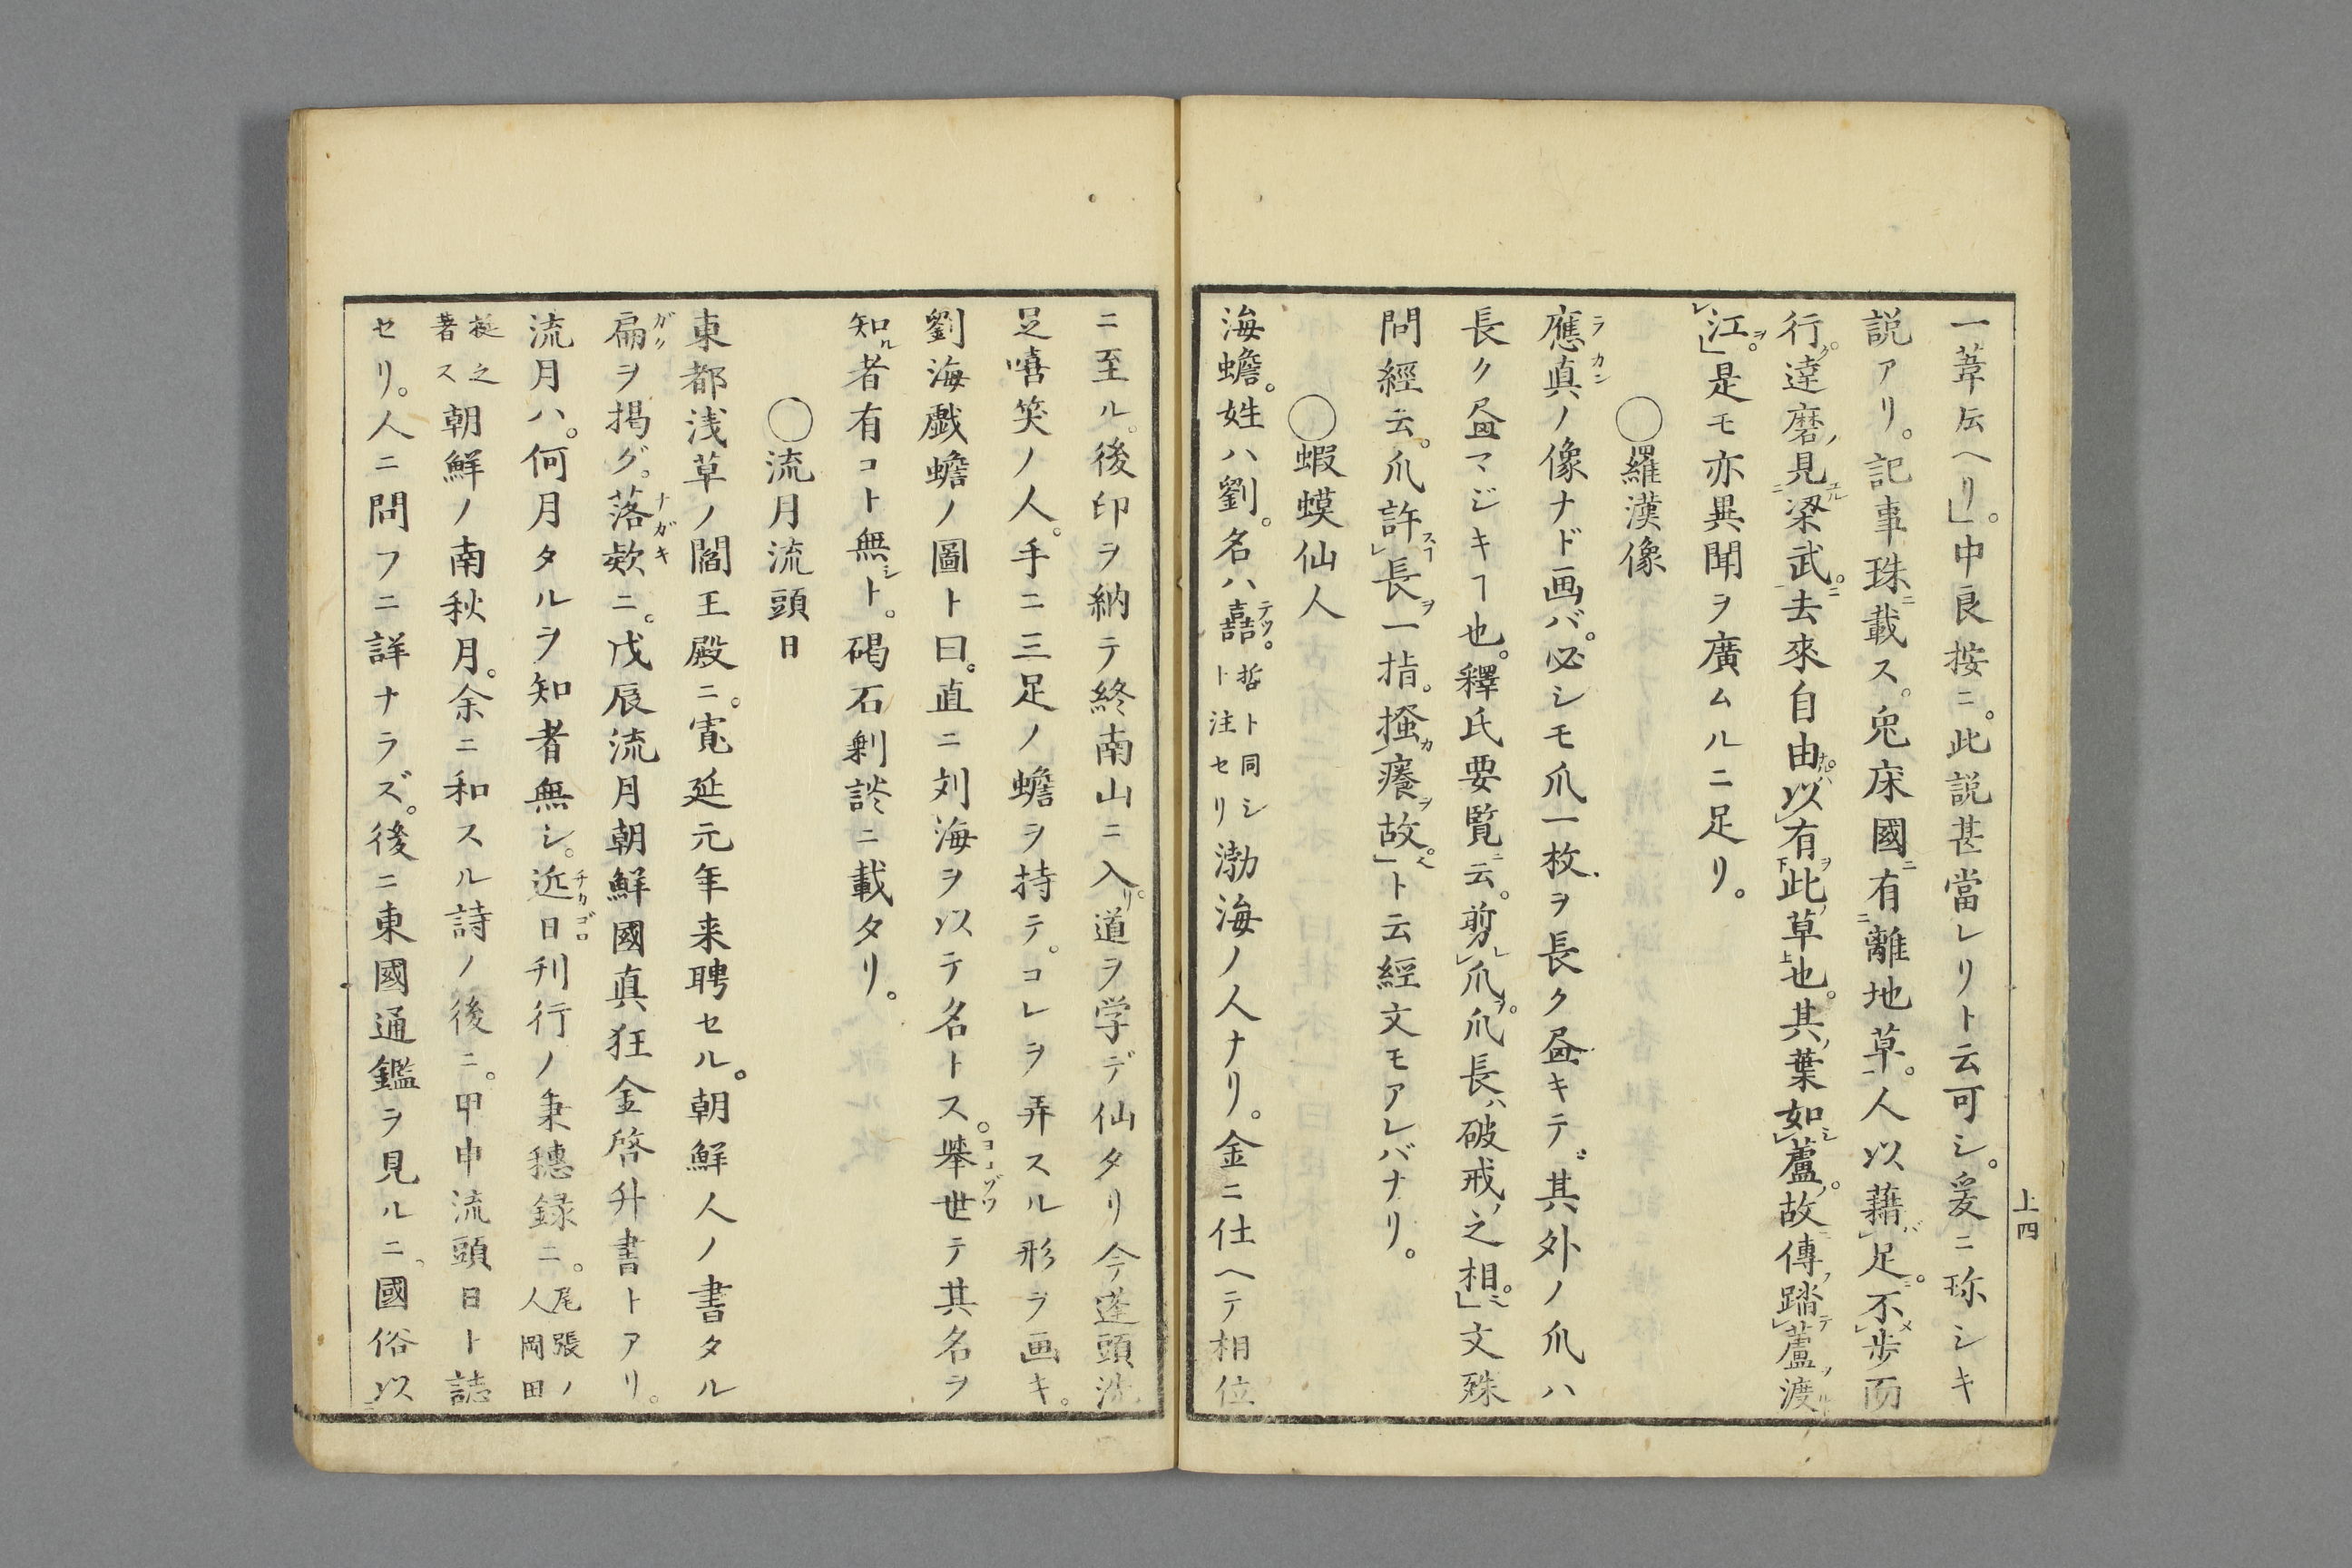 一葦伝ヘリ」。中良按ニ。此説甚當レリト云可シ。爰ニ珎シキ
説アリ。記事珠ニ載ス。兜床國ニ有離地草。人以藉足。不歩而
行。達磨見梁武。去來自由。以有此草也。其葉如蘆。故傳踏蘆渡
江。」是モ亦異聞ヲ廣ムルニ足リ。
○羅漢像
應真ノ像ナド画バ。必シモ爪一枚ヲ長ク畫キテ。其外ノ爪ハ
長ク畫マジキヿ也。釋氏要覧ニ云。剪爪。爪長ハ破戒之相。」文殊
問經云。爪許長一指。搔癢故」ト云経文モアレバナリ。
○蝦蟆仙人
海蟾。姓ハ劉。名ハ嚞。哲ト同シト注セリ渤海ノ人ナリ。金ニ仕ヘテ相位
上四
ニ至ル。後印ヲ納テ終南山ニ入リ。道ヲ学デ仙タリ今蓬頭洗
足嘻笑ノ人。手ニ三足ノ蟾ヲ持テ。コレヲ弄スル形ヲ画キ。
劉海戯蟾ノ圖ト曰。直ニ刘海ヲ以テ名トス。舉世テ其名ヲ
知ル者有コト無シト。碣石剰談ニ載タリ。
○流月流頭日
東都浅草ノ閻王殿ニ。寛延元年来聘セル。朝鮮人ノ書タル
扁ヲ掲グ。落欵ニ。戊辰流月朝鮮國真狂金啓升書トアリ。
流月ハ。何月タルヲ知者無シ。近日刊行ノ秉穗録ニ。尾張ノ人岡田
挺之著ス朝鮮ノ南秋月。余ニ和スル詩ノ後ニ。甲申流頭日ト誌
セリ。人ニ問フニ詳ナラズ。後ニ東國通鑑ヲ見ルニ。國俗以